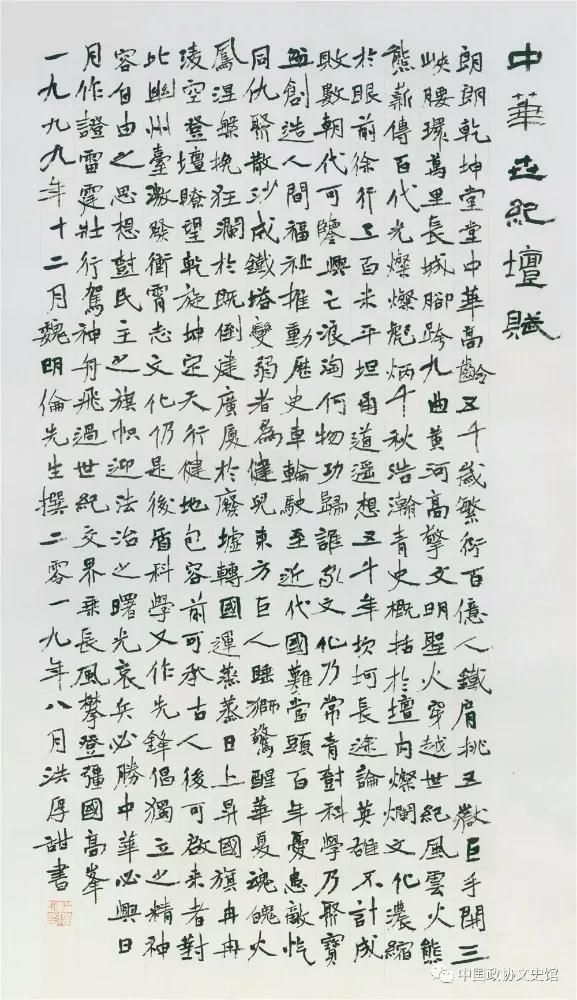 中華世紀壇賦
朗朗乾坤堂堂中華高齡五千歲繁衍百億人鐵肩挑五嶽巨手開三
峽腰環萬里長城腳跨九曲黃河高擎文明聖火穿越世紀風雲火熊
熊薪傳百代光燦燦彪炳千秋浩瀚青史概括於壇内燦爛文化濃縮
於眼前徐行二百米平坦甬道遥想五千年坎坷長途論英雄不計成
敗數朝代可鑒興亡浪淘何物功歸誰家文化乃常青樹科學乃聚寶
盆創造人間福祉推動歷史車輪駛至近代國難當頭百年憂患敵愾
同仇聚散沙成鐵塔變弱者為健兒東方巨人睡獅驚醒華夏魂魄火
鳳涅槃挽狂瀾於既倒建廣廈於廢墟轉國運蒸蒸日上昇國旗冉冉
淩空登壇瞭望乾旋坤定天行健地包容前可承古人後可啟来者對
比幽州臺激發衝霄志文化仍是後盾科學又作先鋒倡獨立之精神
容自由之思想鼓民主之旗幟迎法治之曙光哀兵必勝中華必興日
月作證雷霆壯行駕神舟飛過世紀交界乘長風攀登彊國高峯
一九九九年十二月魏明倫先生撰二零一九年八月洪厚甜書
中国政协文史馆